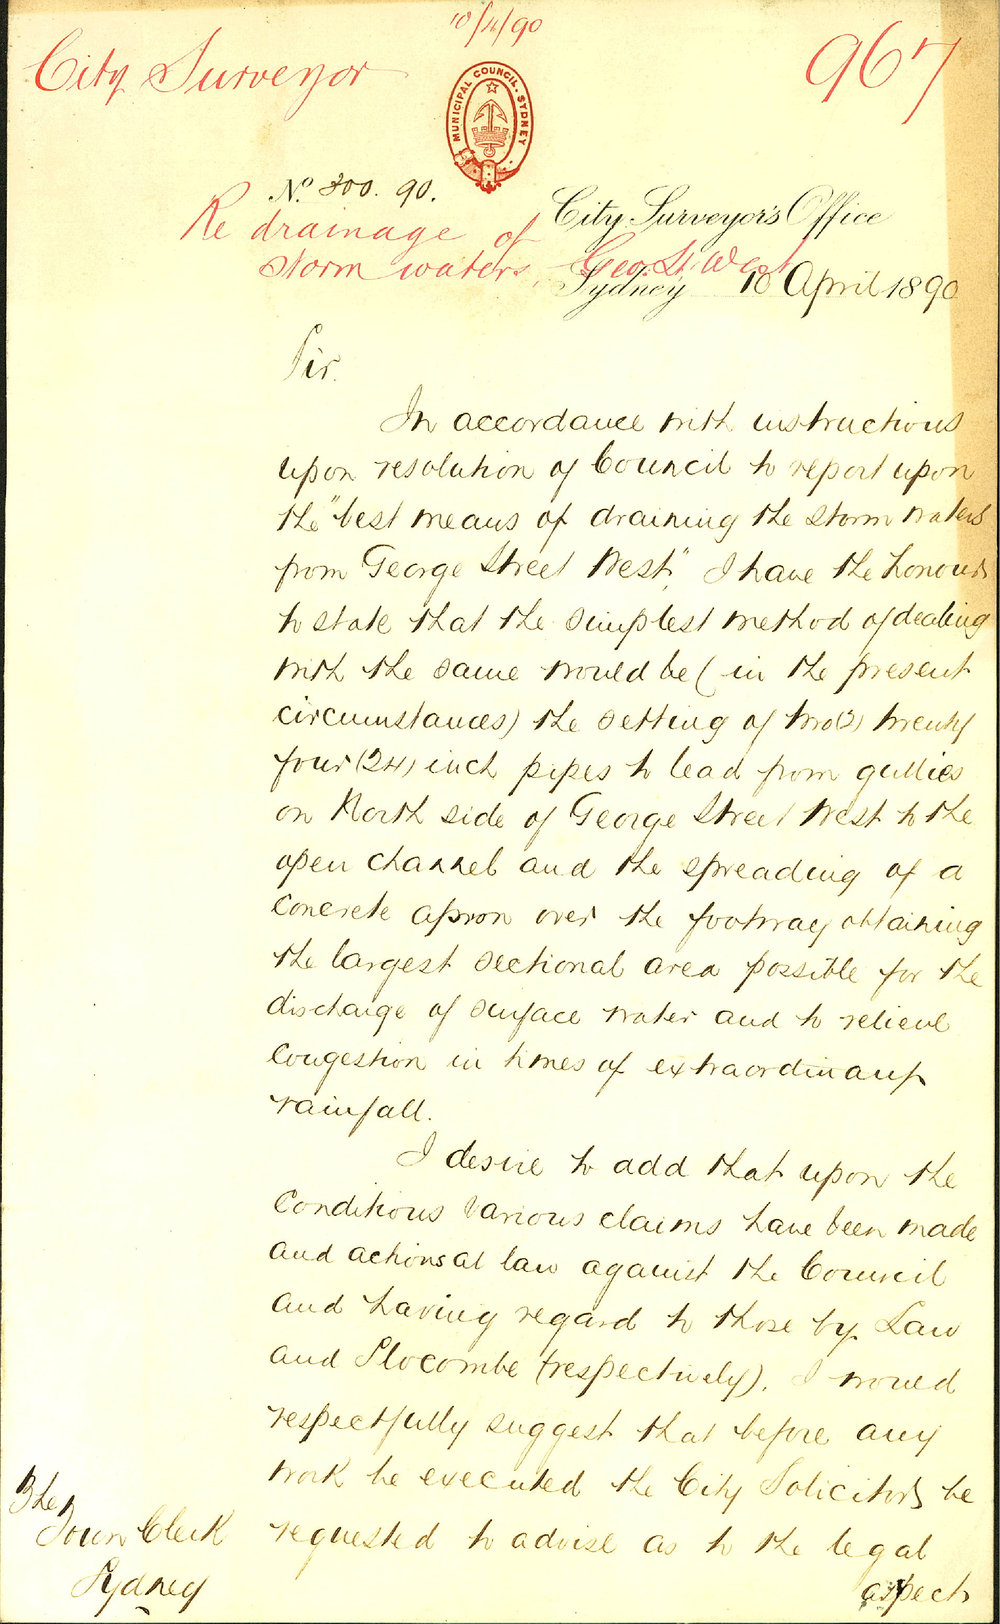 10/4/90
City Surveyor
967
MUNICIPAL COUNCIL. SYDNEY
No. 300. 90.
Re drainage of
storm waters, Geo. St. West
City Surveyor's Office
Sydney 10 April 1890
Sir.
In accordance with instructions
upon resolution of Council to report upon
the "best means of draining the storm waters
from George Street West", I have the honour
to state that the simplest method of dealing
with the same would be (in the present
circumstances) the setting of two (2) twenty
four (24) inch pipes to lead from gullies
on North side of George Street West to the
open channel and the spreading of a
concrete apron over the footway obtaining
the largest sectional area possible for the
discharge of surface water and to relieve
congestion in times of extraordinary
rainfall.
I desire to add that upon the
conditions various claims have been made
and actions at law against the Council
and having regard to those by Law
and Slocombe (respectively). I would
respectfully suggest that before any
work be executed the City Solicitors be
requested to advise as to the legal
aspect
The
Town Clerk
Sydney